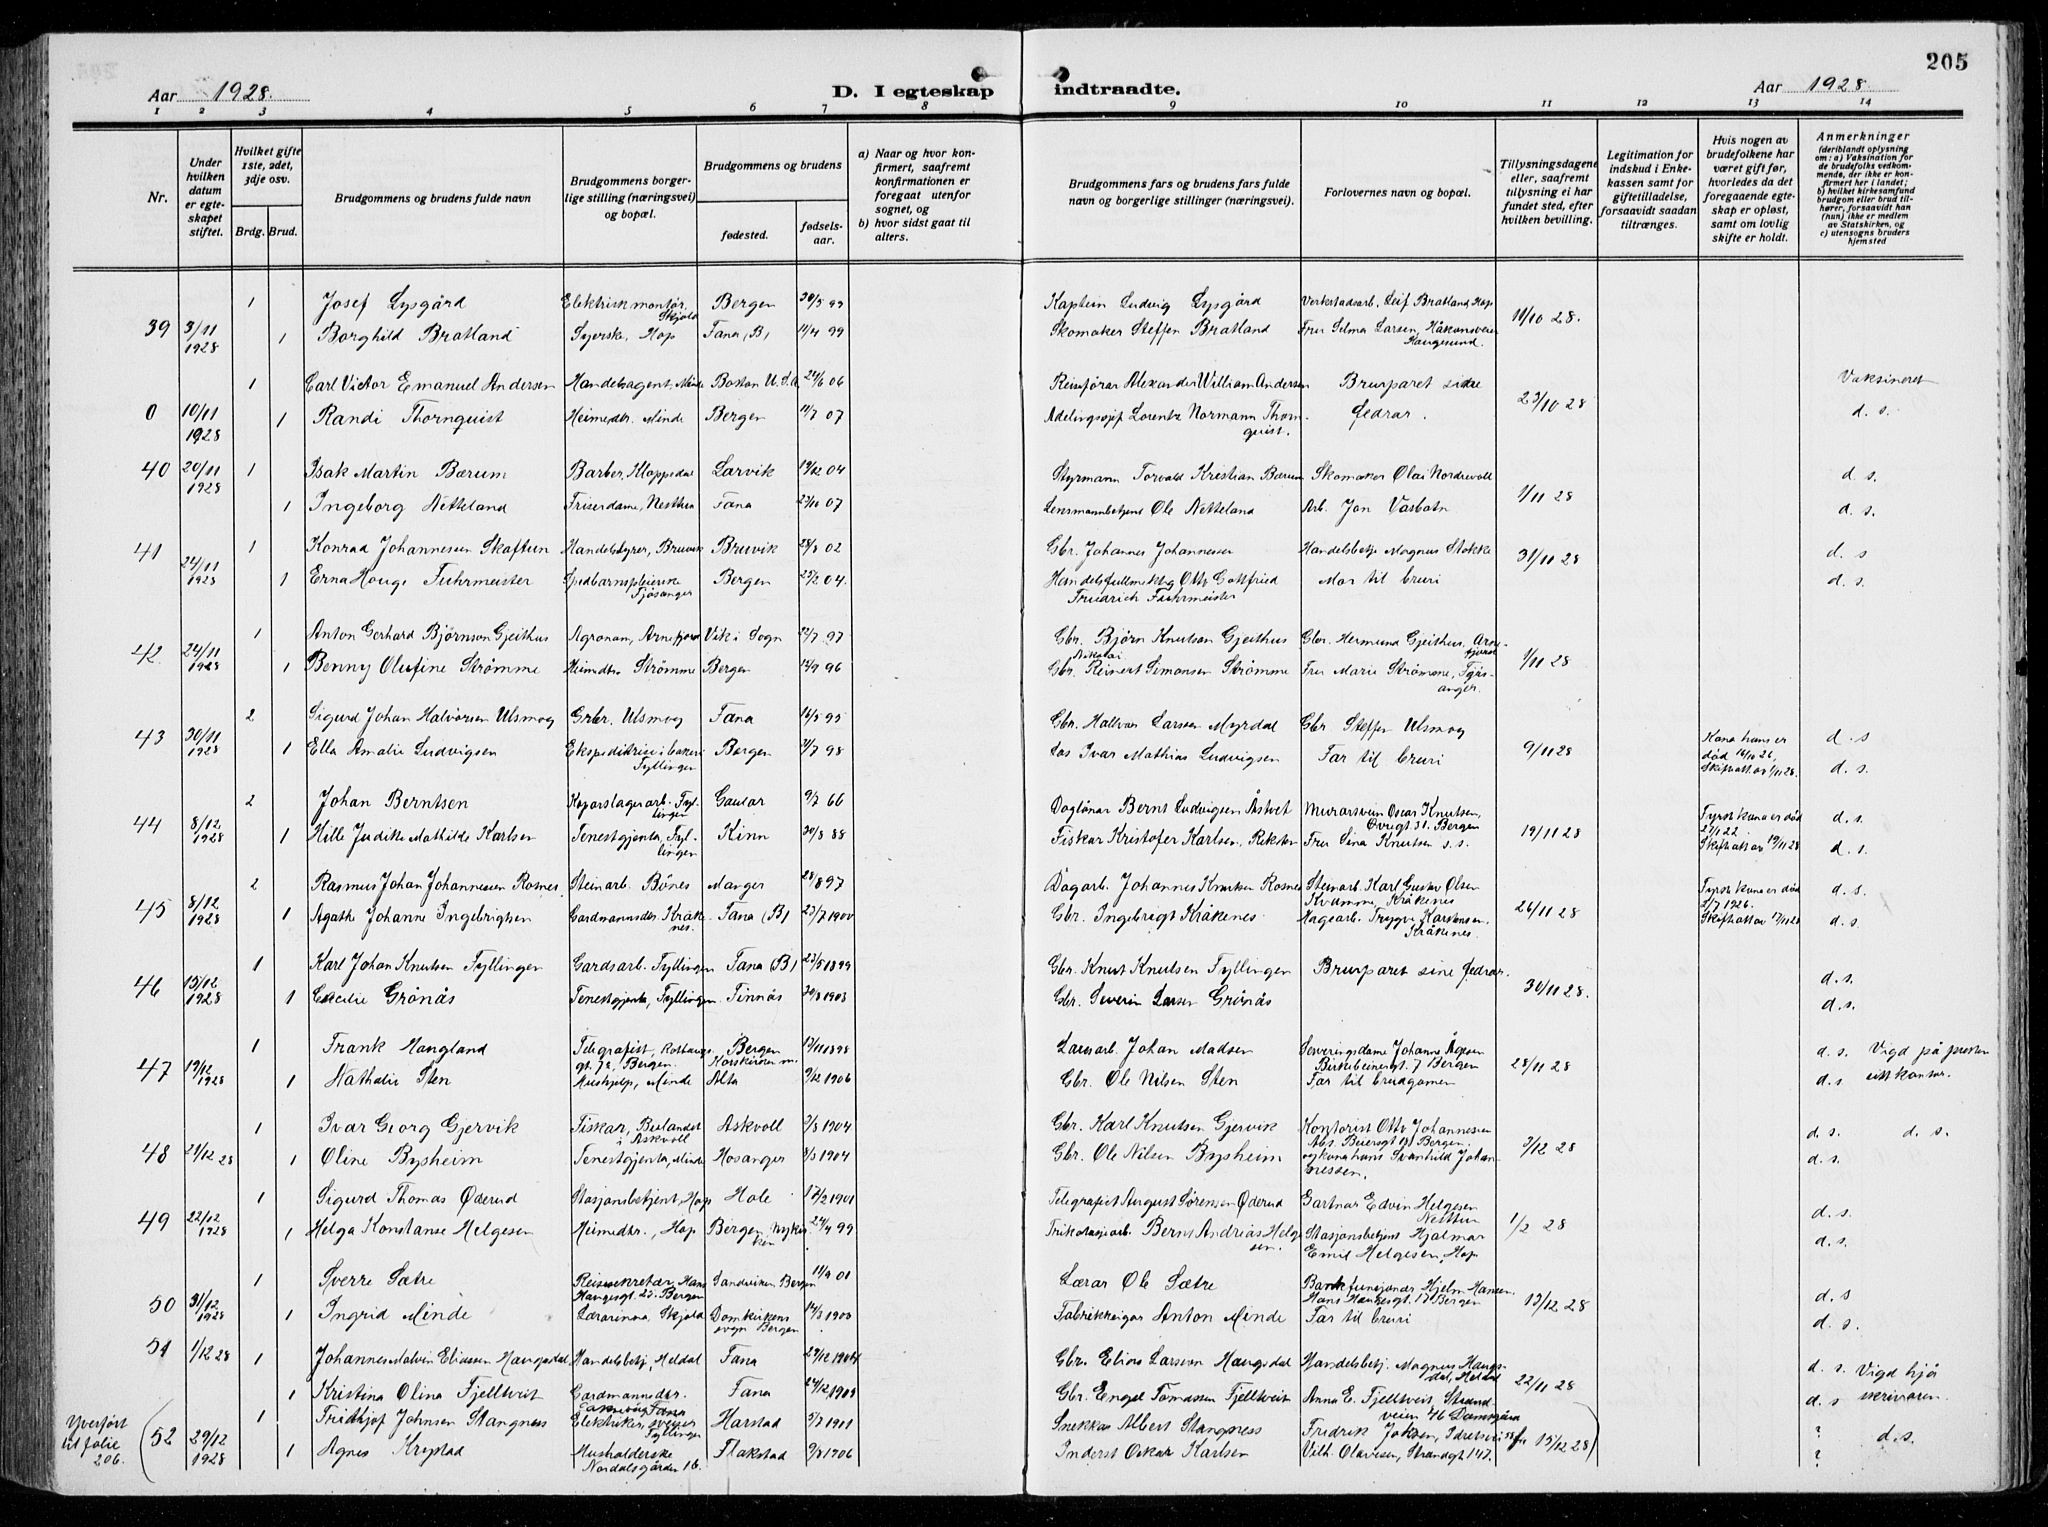 205
Aar 1928.
D. I egteskap indtraadte.
Aar 1928.
1 2 3 4 5 6 7 8 9 10 11 12 13 14
Nr.
Under hvilken datum er egteskapet stiftet.
Hvilket gifte 1ste, 2det, 3dje osv.
Brdg. Brud.
Brudgommens og brudens fulde navn
Brudgommens borgerlige stilling (næringsvei) og bopæl.
Brudgommens og brudens
fødested.
fødselsaar.
a) Naar og hvor konfirmert, saafremt konfirmationen er foregaat utenfor sognet, og
b) hvor sidst gaat til alters.
Brudgommens fars og brudens fars fulde navn og borgerlige stillinger (næringsvei).
Forlovernes navn og bopæl.
Tillysningsdagene eller, saafremt tillysning ei har fundet sted, efter hvilken bevilling.
Legitimation for indskud i Enkekassen samt for giftetilladelse, forsaavidt saadan tiltrænges.
Hvis nogen av brudefolkene har været gift før, hvorledes da det foregaaende egteskap er opløst, samt om lovlig skifte er holdt.
Anmerkninger (deriblandt oplysning om: a) Vaksination for de brudefolks vedkommende, der ikke er konfirmert her i landet; b) hvilket kirkesamfund brudgom eller brud tilhører, forsaavidt han (hun) ikke er medlem av Statskirken, og c) utensogns bruders hjemsted
1 Josef Lysgård Elektriskmontør, Skjold Bergen 30/5 99 Kaptein Ludvig Lysgård Verkstadsarb. Leif Bratland Hop
39 3/11 1928 1 Borghild Bratland Syerske, Hop Fana, (B) 11/4 99 Skomaker Steffen Bratland Fru Selma Larsen, Håkonsveien Haugesund. 11/10 28.
1 Carl Victor Emanuel Andersen Handelsagent, Minde Boston U.S.A 24/6 06 Reiseførar Alexander William Andersen Brurparet sine Vaksineret
0 10/11 1928 1 Randi Thornquist Heimedtr. Minde Bergen 11/7 07 Lorentz Normann Thornquist. fedrar. 23/10 28 d. s.
40 20/11 1928 1 Isak Martin Bærum Barber, Hoppsdal Larvik 19/12 04 Styrmann Torvald Kristian Bærum Skomaker Olai Nordrevoll d. s.
1 Ingeborg Netteland Friserdame, Nesttun Fana 23/10 07 Lensmannbetjent Ole Netteland Arb. Jon Vasbotn 1/11 28 d. s.
41 1 Konrad Johannessen Skaftun Handelstyrer, Bruvik Bruvik 28/8 02 Gbr. Johannes Johannessen Handelsbetje Magnus Stokke d. s
24/11 1928 1 Erna Hauge Fuhrmeister Spedbarnspleierske Fjøsanger Bergen 25/2 04. Handelsfullmektig Otto Gottfried Friedrich Fuhrmeister Mor til bruri 31/11 28 d. s.
1 Anton Gerhard Bjørnson Gjeithus Agronom, Arnefjord Vik i Sogn 22/7 97 Gbr. Bjørn Knutson Gjeithus Gbr. Hermund Gjeithus, Arnefjord
42. 24/11 1928 1 Benny Olufine Strømme Heimdtr Strømme Bergen 12/9 96 Gbr. Nikolai Reinert Simonsen Strømme Fru Marie Strømme, Fjøsanger. 1/11 28
2 Sigurd Johan Halvorsen Ulsmog Grbr. Ulsmog Fana 16/5 95 Gbr. Hallvar Larsen Myrdal Gbr. Steffen Ulsmog
43 30/11 1928 1 Ella Amalie Ludvigsen Ekspeditrise i bakeri Fyllingen Bergen 11/7 98 Los Ivar Mathias Ludvigsen Far til bruri 9/11 28 Kona hans er død 16/10 26, Skifteatt av 1/11 28. d. s d. s.
2 Johan Berntsen Koparslagerarb. Fyllingen Gaular 9/7 66 Daglönar Bernt Ludvigsen Åstvet Murarsvein Oscar Knutsen, Øvregt 31. Bergen
44 8/12 1928 1 Hille Juditte Mathilde Karlsen Tenestgjenta, Fyllingen Kinn 30/8 88 Fiskar Kristofer Karlsen, Reksten Fru Sina Knutsen s. s. 19/11 28 Fyrst kona er død 27/1 22 Skifteatt av 19/11 28 d. s. d. s.
2 Rasmus Johan Johannessen Rosnes Steinarb. Bönes Manger 28/8 97 Dagarb. Johannes Knutsen Rosnes Steinarb. Karl Gustav Olsen Kvamme, Kråkenes
45 8/12 1928 1 Agathe Johanne Ingebrigtsen Gardmannsdtr. Kråkenes. Fana (B) 23/7 1900 Gbr. Ingebrigt Kråkenes Hagearb. Trygve Karstensen, Kråkenes 26/11 28 Fyrst kona er død 5/7 1926. Skifteatt av 17/11 28 d. s. d. s.
1 Karl Johan Knutsen Fyllingen Gardsarb. Fyllingen Fana (B) 23/5 1899 Gbr. Knut Knutsen Fyllingen Brurparet sine fedrar.
46 15/12 1928 1 Cecilie Grönås Tenestgjenta, Fyllingen Finnås 30/8 1903 Gbr. Severin Larsen Grönås 30/11 28. d. s. d. s.
1 Frank Haugland Telegrafist, Bergen. Bergen Korskirken m. 13/11 1898 Lausarb. Johan Madsen Serveringsdame Johanne Ågesen Birkebeinergt. 7 Bergen d. s. Vigd på presten sitt kontor.
47 19/12 1928 1 Nathalie Sten Hushjelp, Minde Alta 9/12 1906 Gbr. Ole Nilsen Sten Far til brudgomen 28/11 28 d. s
1 Ivar Georg Gjervik Fiskar, Bulandet i Askvoll Askvoll 2/8 1904 Gbr. Karl Knutsen Gjervik Kontorist Otto Johannessen Abs. Beiersgt Bergen. og kona hans Svanhild Johannessen. d. s. d. s.
48 21/12 28 1 Oline Bysheim Tenestgjenta, Minde Hosanger 8/3 1904 Gbr. Ole Nilsen Bysheim 3/12 28 d. s.
1 Sigurd Thomas Øderud Stasjonsbetjent, Hop Hole 17/2 1901 Telegrafist August Sörensen Øderud Gartnar Edvin Helgesen Nesttun
49 22/12 1928 1 Helga Konstanse Helgesen Heimedtr., Hop Bergen Nykirken 24/4 99 Trikotasjearb. Bernt Andreas Helgesen. Stasjonsbetjent Hjalmar Emil Helgesen, Hop 1/2 28 d. s. d. s.
1 Sverre Sætre Reisesekretær Hans Haugesgt. 23. Bergen Sandviken Bergen 11/9 01 Lærar Ole Sætre Bankfunsjonær Hjelm Hansen, Hans Haugesgt. 17 Bergen
50 31/12 1928 1 Ingrid Minde Lærarinna Skjold Domkirkens sogn Bergen 14/3 1903 Fabrikkeigar Anton Minde Far til bruri 13/12 28 d. s d. s.
51 1/12 28 1 Johannes Malvin Eliassen Haugsdal Handelsbetj. Heldal Fana 29/12 1904 Gbr. Elias Larsson Haugsdal Handelsbetj. Magnus Haugsdal, Heldal d. s. Vigd hjå skrivaren.
1 Kristina Olina Fjelltveit Gardmannsdtr. Fana Fana 24/12 1903 Gbr. Engel Tomassen Fjelltveit Anna E. Fjelltveit, Strandveien 46 Damsgård 22/11 28 d. s
Yverført til folie 206. (52 29/12 1928 1 Fridtjof Johnsen Stangnes Elektriker, Fyllingen Harstad 3/7 1901 Snekkar Albert Stangness Fredrik Jakobsen, 15/12 28) ? d. s.
1 Agnes Krystad Husholderske Nordalsgården 16. Flakstad 9/8 1906 Inderst Oskar Karlsen Vilh. Olavesen, Strandgt 147. ?